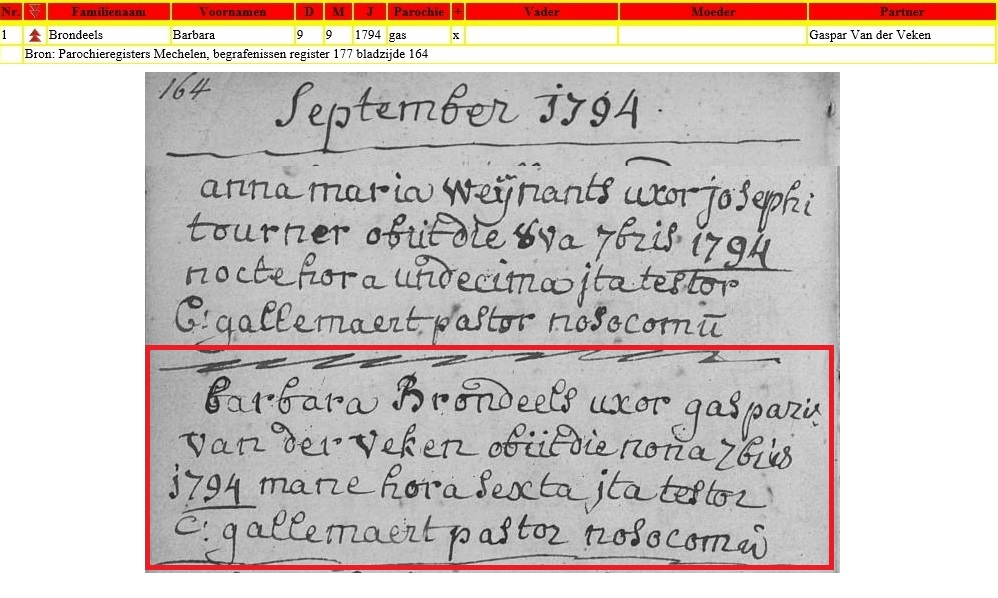 Nr. Familienaam Voornamen D M J Parochie + Vader Moeder Partner
1 Brondeels Barbara 9 9 1794 gas x Gaspar Van der Veken
Bron: Parochieregisters Mechelen, begrafenissen register 177 bladzijde 164
164
September 1794
anna maria Weÿnants uxor josephi
tourner obiit die 8va 7bris 1794
nocte hora undecima jta testor
C: gallemaert pastor nosocomii
Barbara Brondeels uxor gasparis
van der veken obiit die nona 7bris
1794 mane hora sexta jta testor
C: gallemaert pastor nosocomii